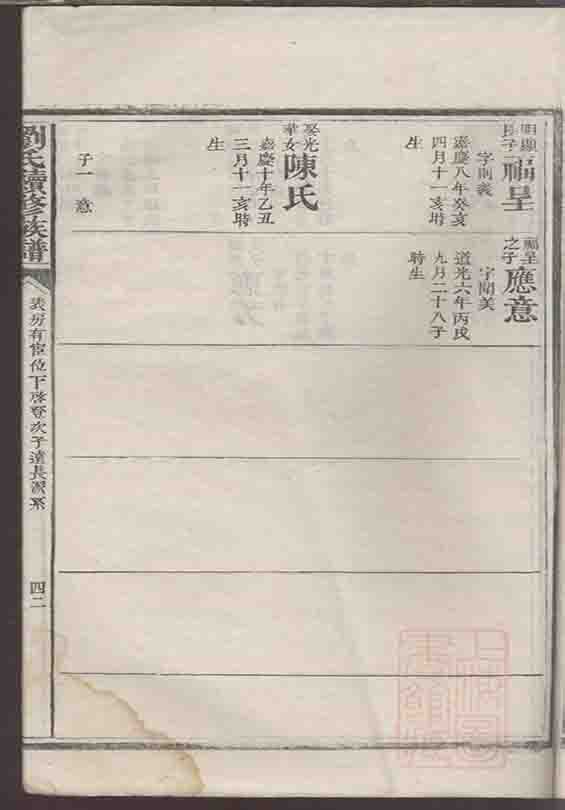 明顯
長子
福呈
字前義
嘉慶八年癸亥
四月十一亥時
生
娶光
華女
陳氏
嘉慶十年乙丑
三月十一亥時
生
子一 應意
福呈
之子
應意
字開美
道光六年丙戌
九月二十八子
時生
劉氏續修族譜
袁房有宦位下啓登次子達長派系
四二
上海圖書館藏